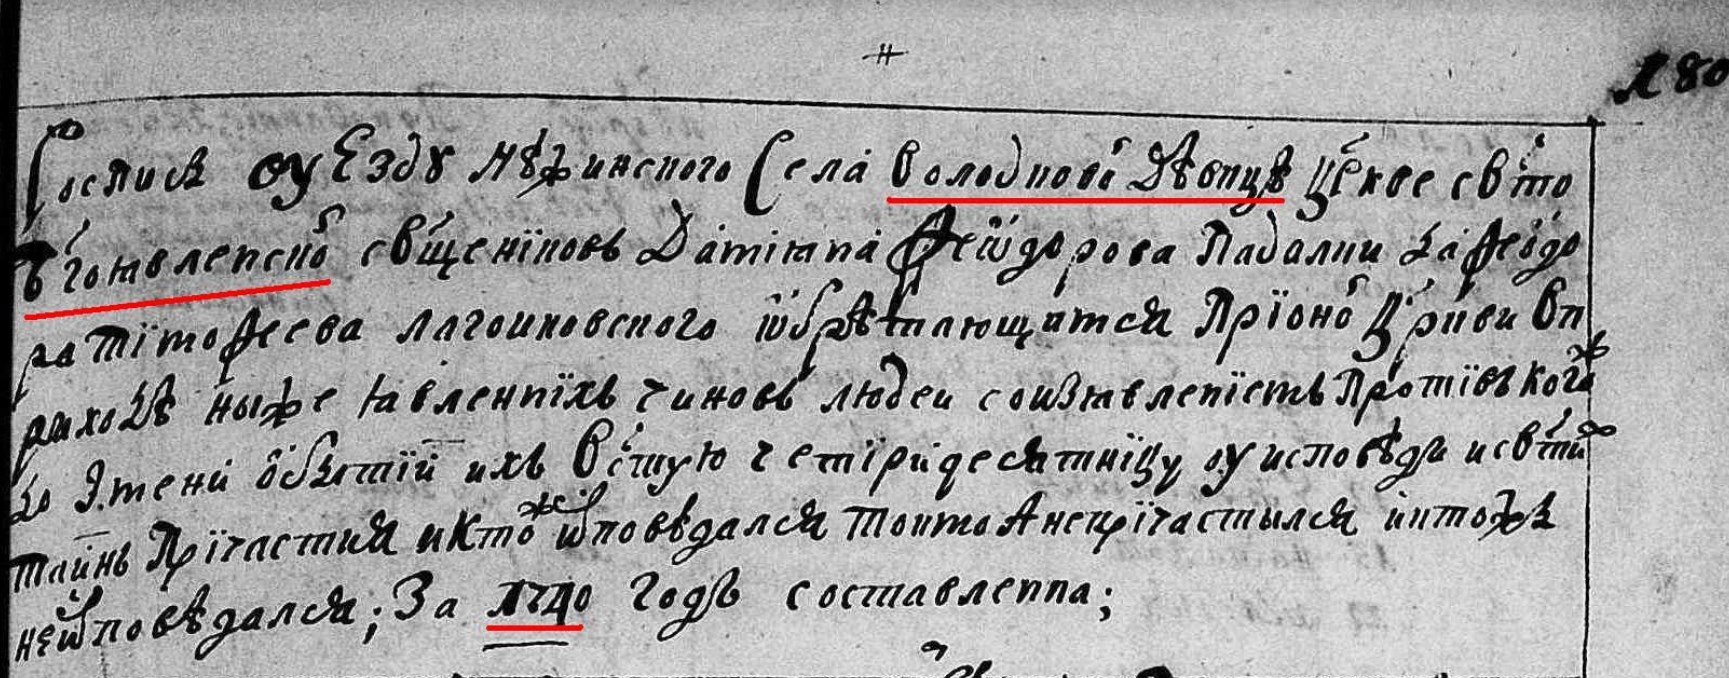 180
Роспись оуезду Нѣжинского Села володковои Дѣвицѣ цркве свто
Бгоявленской свщенїковъ Даміана Феѡдорова Падалки да Феодо
ра Тімофеева Лагошковского ѡбрѣтающиїся Прїоной Цркви вп
риходѣ ныже явленнїхъ чиновъ людеи соизявленїемъ Протівъкого
до Імени бытїй ихъ Встую четїридесятнїцу оу исповѣди исвтих
таїнъ Прїчастия икто жъ исповѣдался токмо А непрїчастылся иктожъ
неисповѣдался; За 1740 Годъ составленна;